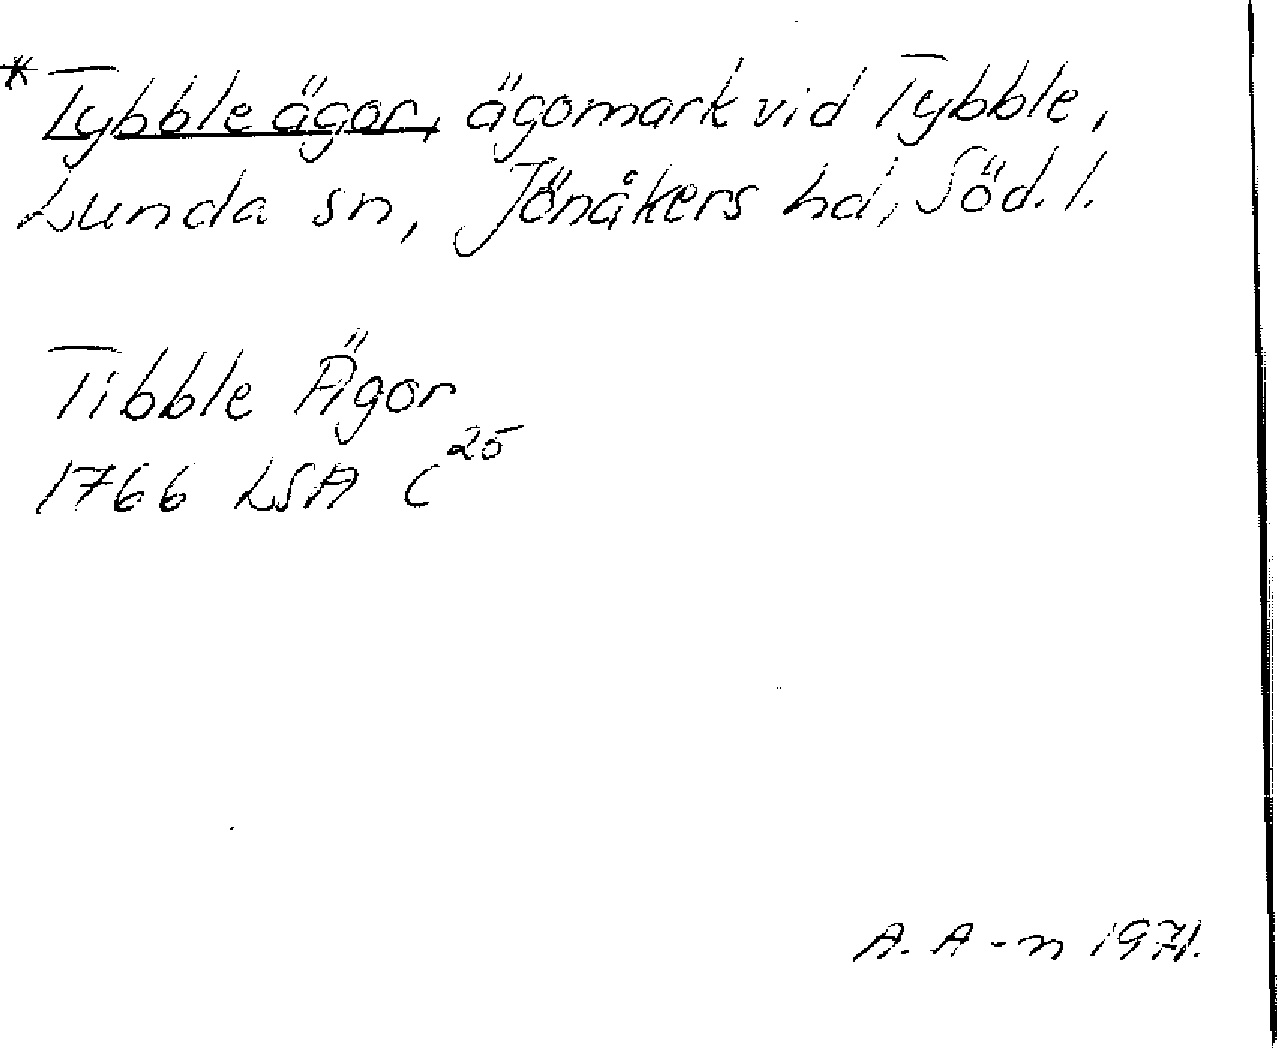 * Tybble ägor, ägomark vid Tybble,
Lunda sn, Jönåkers hd, Söd. l.
Tibble Ägor
1766 LSA C 25
A. A-n 1971.